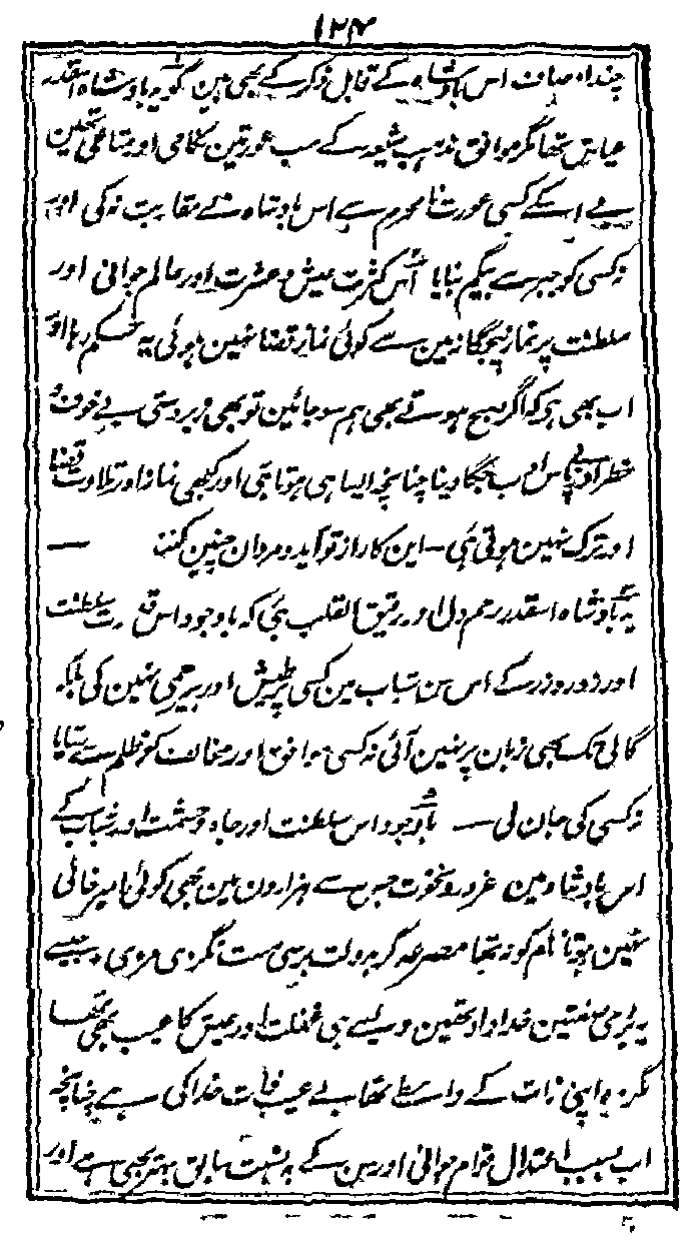 ۱۲۴
چند اوصاف اس بادشاہ کے قابل ذکر کے بھی ہین گو یہ بادشاہ اسقدر
عیاش تھا مگر موافق مذہب شیعہ کے سب عورتین نکاحی اور متاعی تھین
بے اسکے کسی عورت نامحرم سے اس بادشاہ نے مقاربت نہ کی اور
نہ کسی کو جبر سے بیگم بنایا اس کثرت عیش و عشرت اور عالم جوانی اور
سلطنت پر نماز پنجگانہ مین سے کوئی نماز قضا نہین ہوئی یہ حکم رہا اور
اب بھی ہی کہ اگر صبح ہوتے بھی ہم سو جائین تو بھی زبردستی بے خوف و
خطر جگا دینا چنانچہ ایسا ہی ہوتا ہی اور کبھی نماز اور تلاوت قضا
اور ترک نہین ہوتی ہی – این کار از تو آید و مردان چنین کنند —
یہ بادشاہ اسقدر رحم دل اور رقیق القلب ہی کہ باوجود اس سلطنت
اور زور و زر کے اس سن شباب مین کسی پر طیش اور بیرحمی نہین کی بلکہ
گالی تک بھی زبان پر نہین آئی نہ کسی موافق اور مخالف کو ظلم سے ستایا
نہ کسی کی جان لی — باوجود اس سلطنت اور جاہ و حشمت اور شباب کے
اس بادشاہ مین غرور و نخوت جس سے ہزارون مین بھی کوئی امیر خالی
نہین ہوتا نام کو نہ تھا مصرعہ گر بدولت برسی مست نگردی مردی جیسے
یہ بڑی صفتین خداداد تھین ویسے ہی غفلت اور عیش کا عیب بھی تھا
مگر وہ اپنی ذات کے واسطے تھا بے عیب ذات خدا کی ہے چنانچہ
اب بسبب اعتدال قوام جوانی اور سن کے بہ نسبت سابق بہتر بھی ہے اور